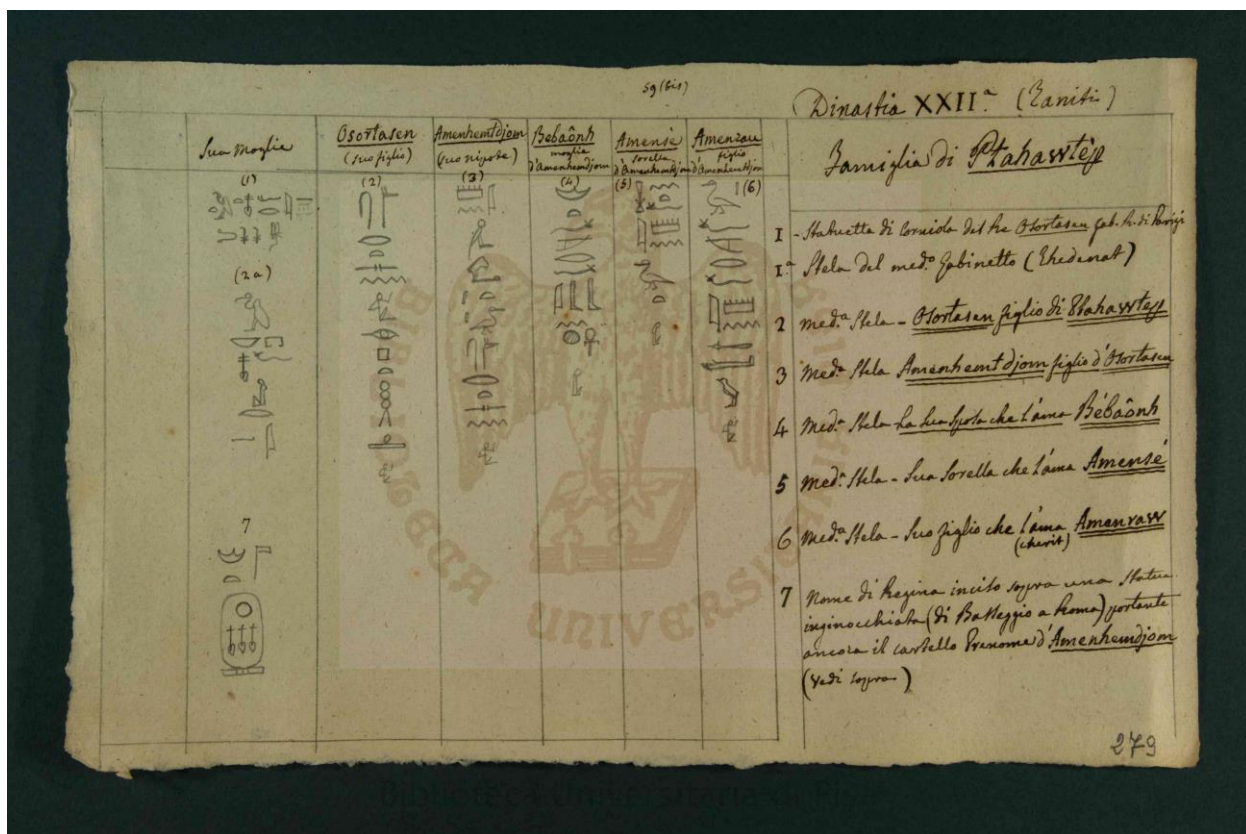 59 (bis)
Dinastia XXII.ª (Taniti)
Famiglia di Ptahawtép
Sua Moglie
Osortasen
(suo figlio)
Amenhemtdjom
(suo nipote)
Bebaônh
moglie
d'Amenhemdjom
Amensè
sorella
d'Amenhemdjom
Amenrau
figlio
d'Amenhemdjom
(1)
(2)
(3)
(4)
(5)
(6)
(2a)
7
I - Statuetta di Corniola del Re Osortasen Gab. R. di Parigi
I.ª Stela del med.º Gabinetto (Thedenat)
2 Med.ª Stela - Osortasen figlio di Ptahawtep
3 Med.ª Stela Amenhemtdjom figlio d'Osortasen
4 Med.ª Stela La sua sposa che l'ama Bébaônh
5 Med.ª Stela - Sua Sorella che l'ama Amensé
6 Med.ª Stela - Suo figlio che l'ama Amenraw
(cherit)
7 Nome di Regina inciso sopra una Statua
inginocchiata (di Basseggio a Roma) portante
ancora il cartello Prenome d'Amenhemdjom
(Vedi sopra)
279
BIBLIOTECA UNIVERSITARIA DI PISA
Biblioteca Universitaria di Pisa